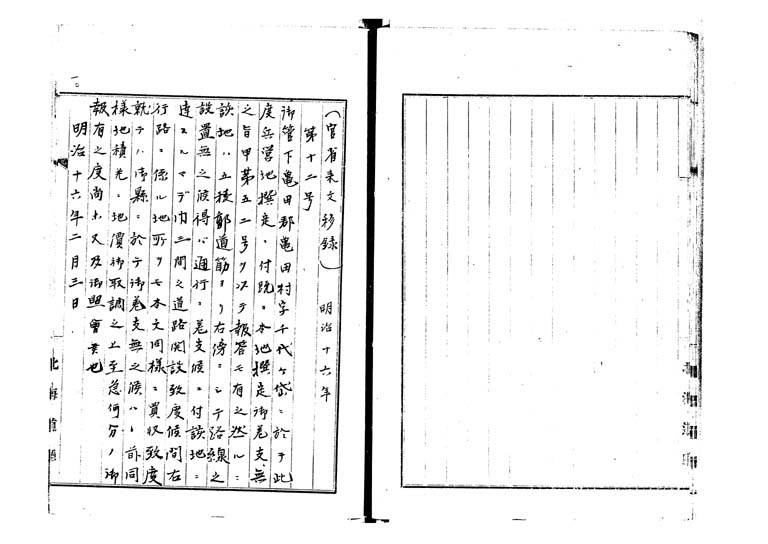 (官省来文移録)
第十二号 明治十六年
御管下亀田郡亀田村字千代ヶ岱ニ於テ此
度兵営地撰定ニ付既ニ本地撰定御差支無
之旨甲第五二号ヲ以テ報答モ有之然ルニ
該地ハ五稜郭道筋ヨリ右傍ニシテ路線之
設置無之候得ハ通行ニ差支候ニ付該地ニ
達スルマデ巾三間之道路開設致度候間右
行路ニ係ル地所ヲモ本文同様ニ買収致度
就テハ御県ニ於テ御差支無之候ハヽ前同
様地積並地價御取調之上至急何分ノ御
報有之度尚
又及御照會候也
明治十六年二月三日
一〇
北海道